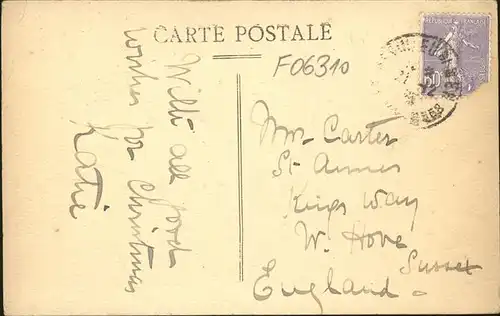 CARTE POSTALE
F06310
With all good
wishes for Christmas
Katie
Mrs Carter
St Annes
Kings Way
W. Hove
Sussex
England
REPUBLIQUE FRANÇAISE